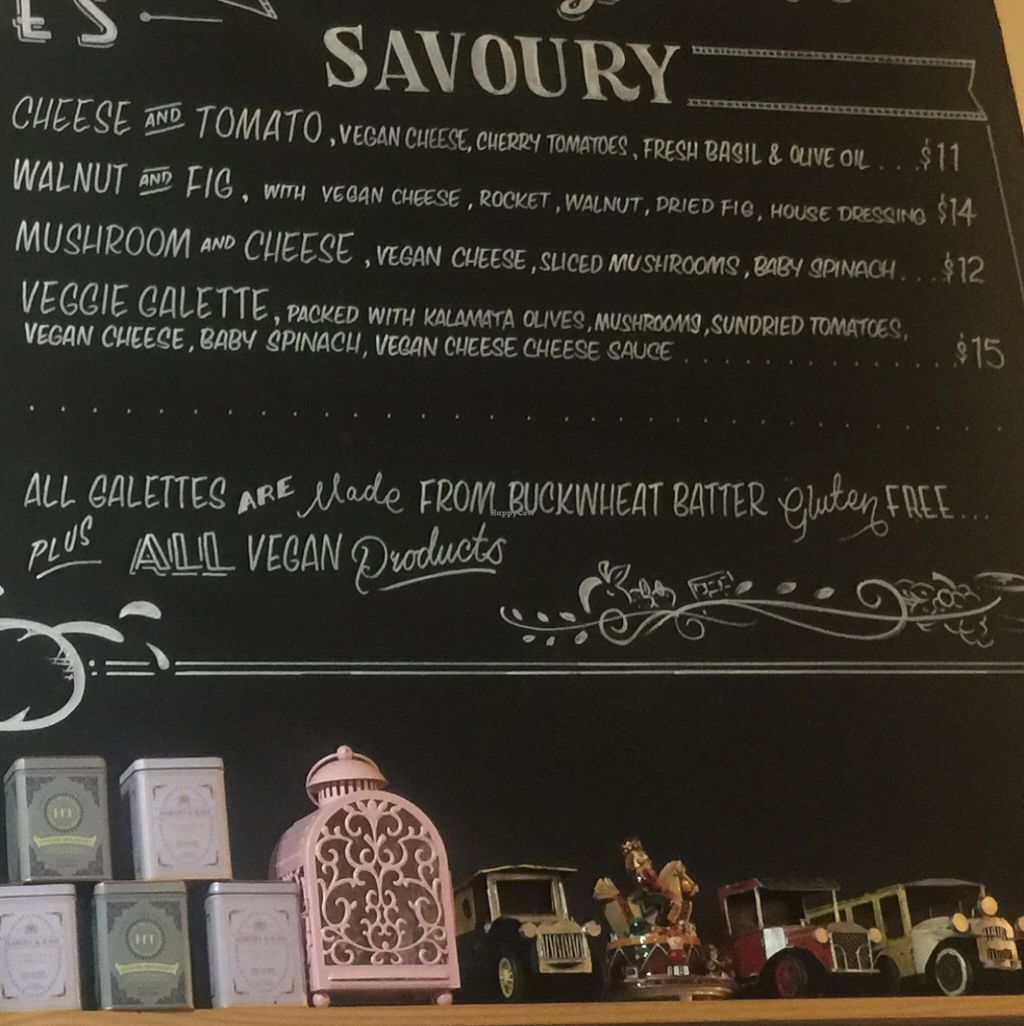 ES
SAVOURY
CHEESE AND TOMATO, VEGAN CHEESE, CHERRY TOMATOES, FRESH BASIL & OLIVE OIL . . . $11
WALNUT AND FIG, WITH VEGAN CHEESE, ROCKET, WALNUT, DRIED FIG, HOUSE DRESSING $14
MUSHROOM AND CHEESE, VEGAN CHEESE, SLICED MUSHROOMS, BABY SPINACH . . . $12
VEGGIE GALETTE, PACKED WITH KALAMATA OLIVES, MUSHROOMS, SUNDRIED TOMATOES,
VEGAN CHEESE, BABY SPINACH, VEGAN CHEESE CHEESE SAUCE . . . . . . . . . . . . . . $15
ALL GALETTES ARE Made FROM BUCKWHEAT BATTER Gluten FREE...
HappyCow
PLUS ALL VEGAN Products
HT
HARNEY & SONS
HARNEY & SONS
HT
HARNEY & SONS